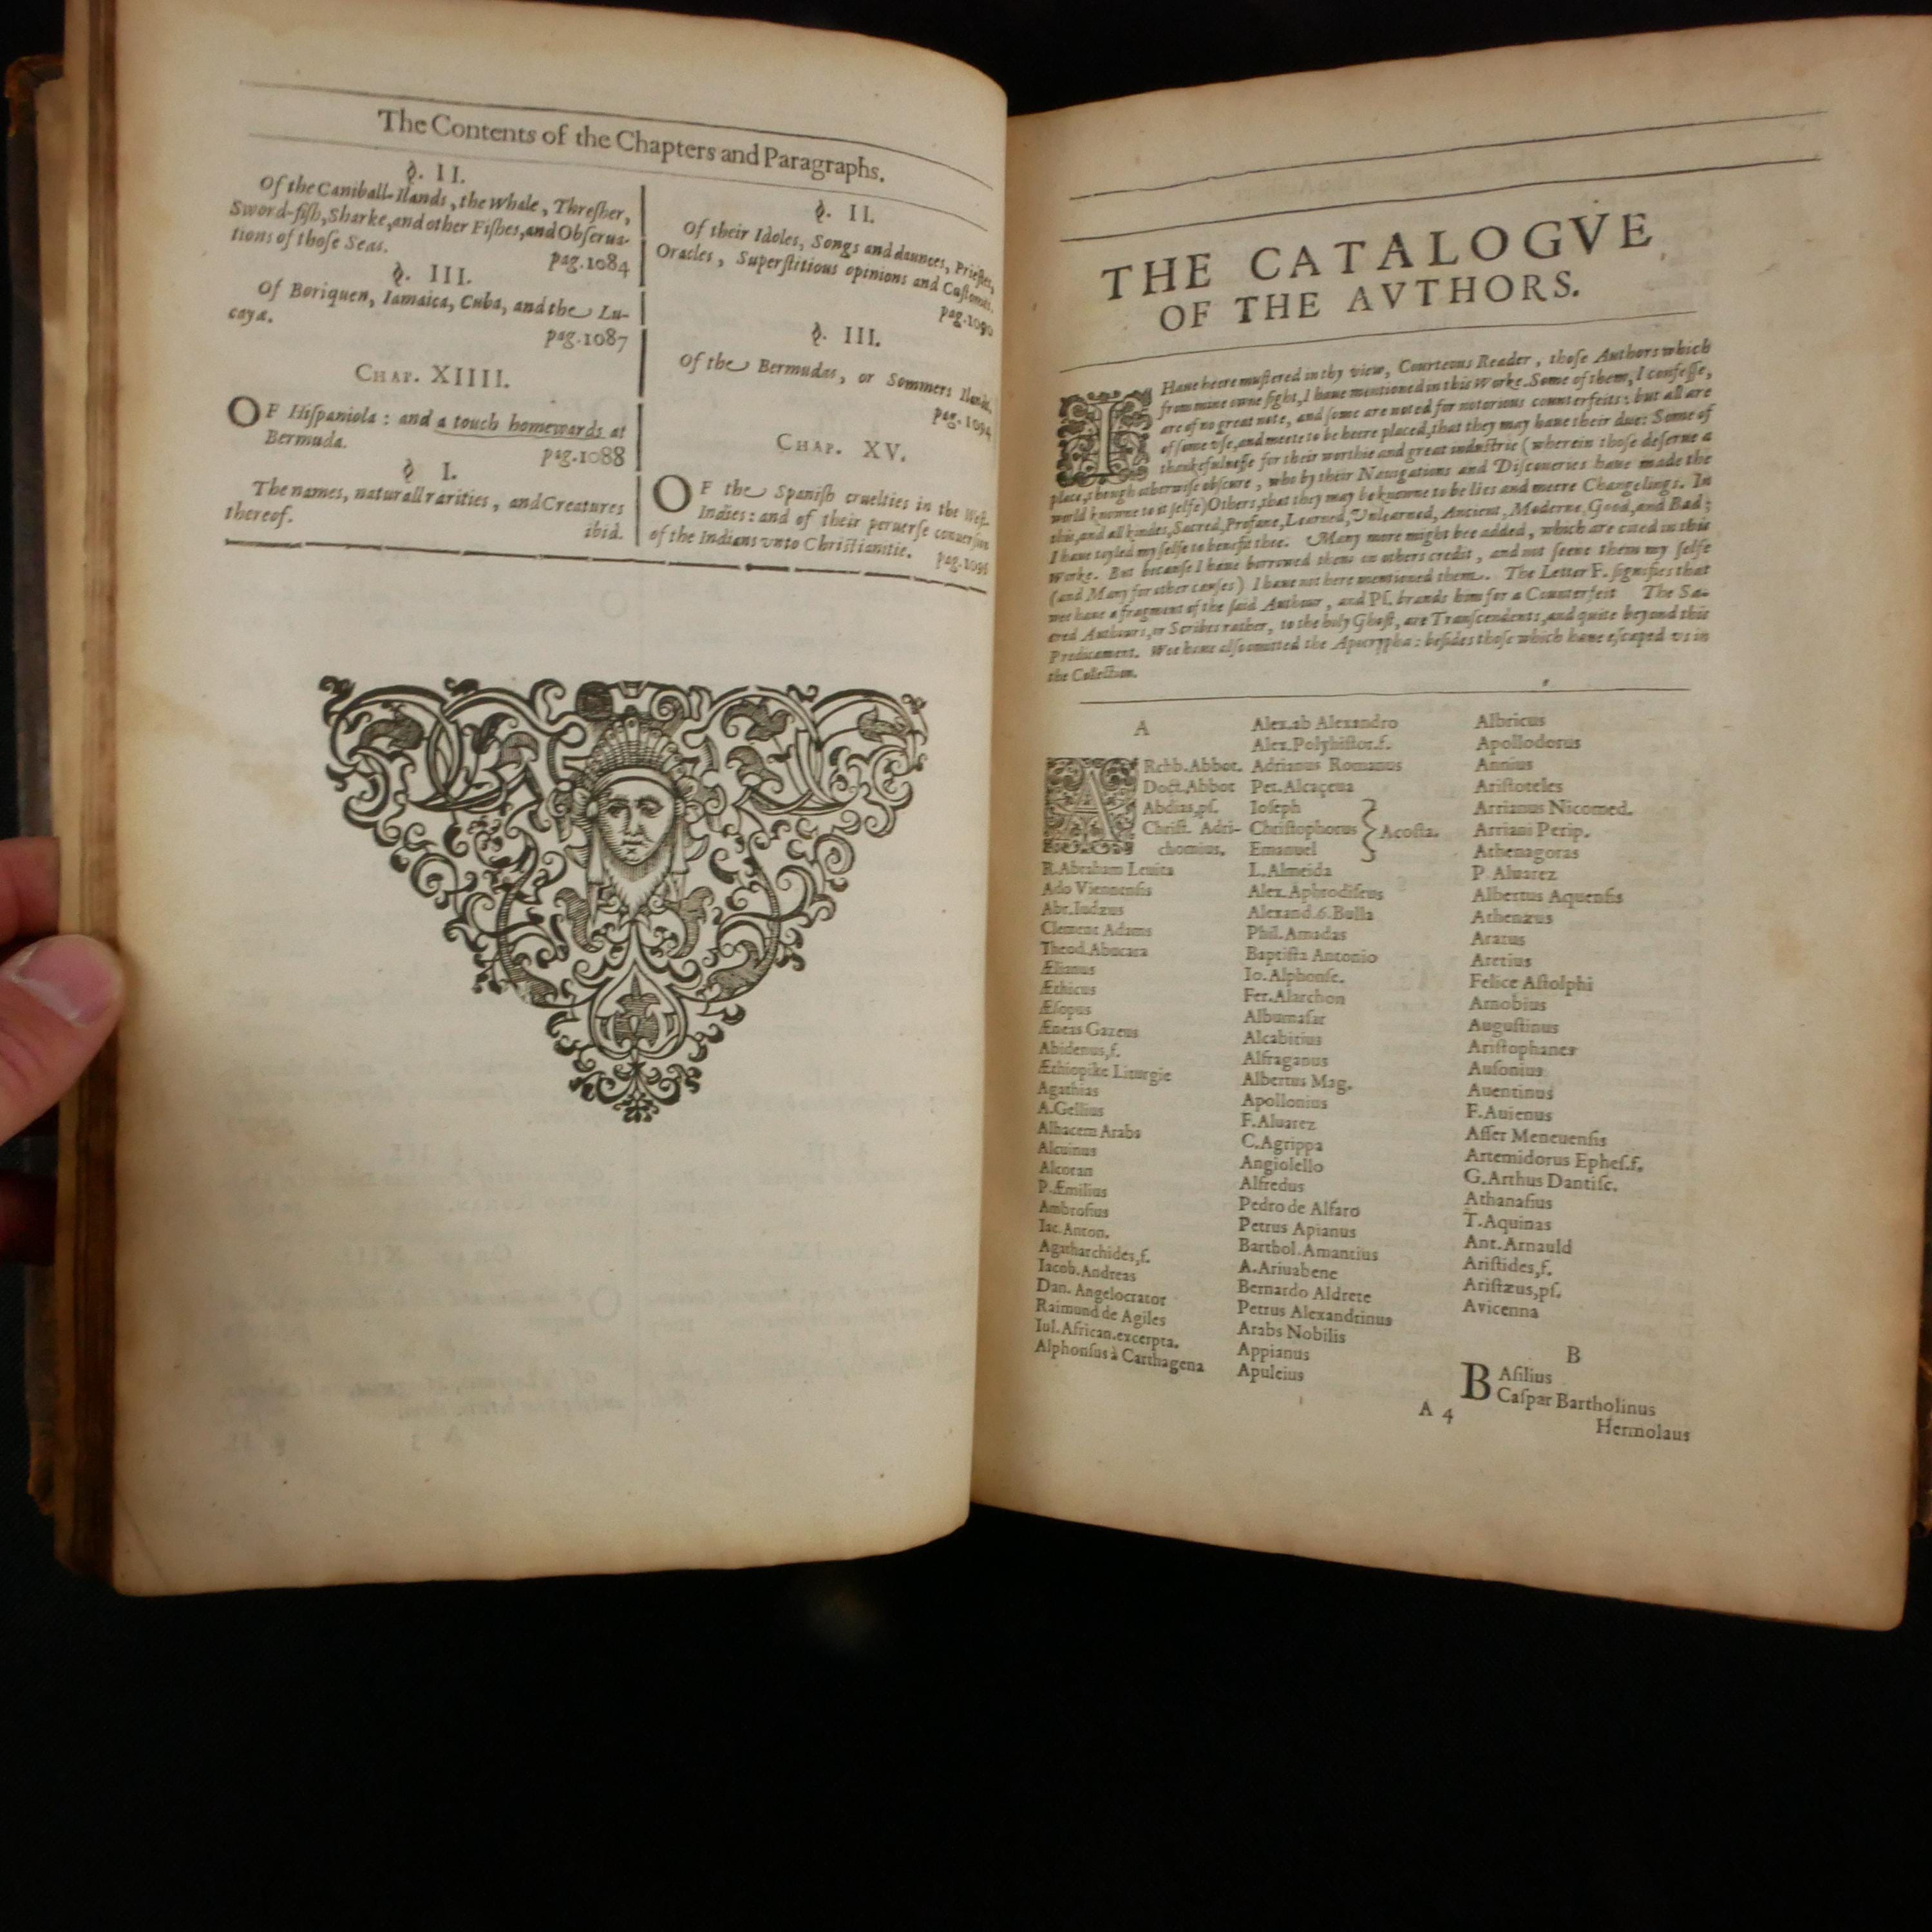 The Contents of the Chapters and Paragraphs.
§. II.
Of the Caniball-Ilands, the Whale, Threſher,
Sword-fiſh, Sharke, and other Fiſhes, and Obſerua-
tions of thoſe Seas. pag.1084
§. III.
Of Boriquen, Iamaica, Cuba, and the Lu-
cayæ. pag.1087
CHAP. XIIII.
OF Hiſpaniola: and a touch homewards at
Bermuda. pag.1088
§ I.
The names, naturall rarities, and Creatures
thereof. ibid.
§. II.
Of their Idoles, Songs and daunces, Prieſtes,
Oracles, Superſtitious opinions and Cuſtomes.
pag.1090
§. III.
Of the Bermudas, or Sommers Ilands.
pag.1094
CHAP. XV.
OF the Spaniſh cruelties in the Weſt-
Indies: and of their peruerſe conuerſion
of the Indians vnto Chriſtianitie. pag.1096
THE CATALOGVE
OF THE AVTHORS.
I Haue heere muſtered in thy view, Courteous Reader, thoſe Authors which
from mine owne ſight, I haue mentioned in this Worke. Some of them, I confeſſe,
are of no great note, and ſome are noted for notorious counterfeits: but all are
of ſome vſe, and meete to be heere placed, that they may haue their due: Some of
thankefulneſſe for their worthie and great induſtrie (wherein thoſe deſerue a
place, though otherwiſe obſcure, who by their Nauigations and Diſcoueries haue made the
world knowne to it ſelfe) Others, that they may be knowne to be lies and meere Changelings. In
this, and all kindes, Sacred, Profane, Learned, Vnlearned, Ancient, Moderne, Good, and Bad;
I haue toyled my ſelfe to benefit thee. Many more might bee added, which are cited in this
Worke. But becauſe I haue borrowed them on others credit, and not ſeene them my ſelfe
(and Many for other cauſes) I haue not here mentioned them. The Letter F. ſignifies that
wee haue a fragment of the ſaid Authour, and Pſ. brands him for a Counterfeit The Sa-
cred Authours, or Scribes rather, to the holy Ghoſt, are Tranſcendents, and quite beyond this
Predicament. Wee haue alſo omitted the Apocrypha: beſides thoſe which haue eſcaped vs in
the Collection.
A
ARchb.Abbot.
Doct.Abbot
Abdias,pſ.
Chriſt. Adri-
chomius.
R.Abraham Leuita
Ado Viennenſis
Abr.Iudæus
Clement Adams
Theod.Abucara
Ælianus
Æthicus
Æſopus
Æneas Gazeus
Abidenus,f.
Æthiopike Liturgie
Agathias
A.Gellius
Alhacem Arabs
Alcuinus
Alcoran
P.Æmilius
Ambroſius
Iac.Anton.
Agatharchides,f.
Iacob.Andreas
Dan. Angelocrator
Raimund de Agiles
Iul.African.excerpta.
Alphonſus à Carthagena
Alex.ab Alexandro
Alex.Polyhiſtor.f.
Adrianus Romanus
Pet.Alcaçeua
Ioſeph
Christophorus } Acoſta.
Emanuel
L.Almeida
Alex.Aphrodiſeus
Alexand.6.Bulla
Phil.Amadas
Baptiſta Antonio
Io.Alphonſe.
Fer.Alarchon
Albumaſar
Alcabitius
Alfraganus
Albertus Mag.
Apollonius
F.Aluarez
C.Agrippa
Angiolello
Alfredus
Pedro de Alfaro
Petrus Apianus
Barthol.Amantius
A.Ariuabene
Bernardo Aldrete
Petrus Alexandrinus
Arabs Nobilis
Appianus
Apuleius
Albricus
Apollodorus
Annius
Ariſtoteles
Arrianus Nicomed.
Arriani Perip.
Athenagoras
P.Aluarez
Albertus Aquenſis
Athenæus
Aratus
Aretius
Felice Aſtolphi
Arnobius
Auguſtinus
Ariſtophanes
Auſonius
Auentinus
F.Auienus
Aſſer Meneuenſis
Artemidorus Epheſ.f.
G.Arthus Dantiſc.
Athanaſius
T.Aquinas
Ant.Arnauld
Ariſtides,f.
Ariſtæus,pſ.
Avicenna
B
BAſilius
Caſpar Bartholinus
A 4
Hermolaus